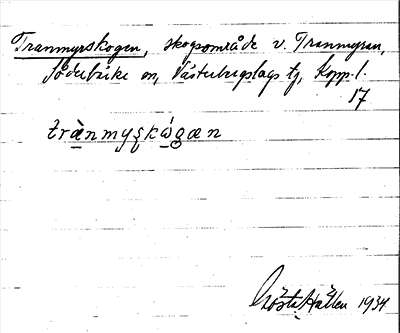 Tranmyrskogen, skogsområde v. Tranmyran,
Söderbärke sn, Västerbergslags tg, Kopp. l.
17
trànmyʂkẃgæn
Gösta Hallen 1934